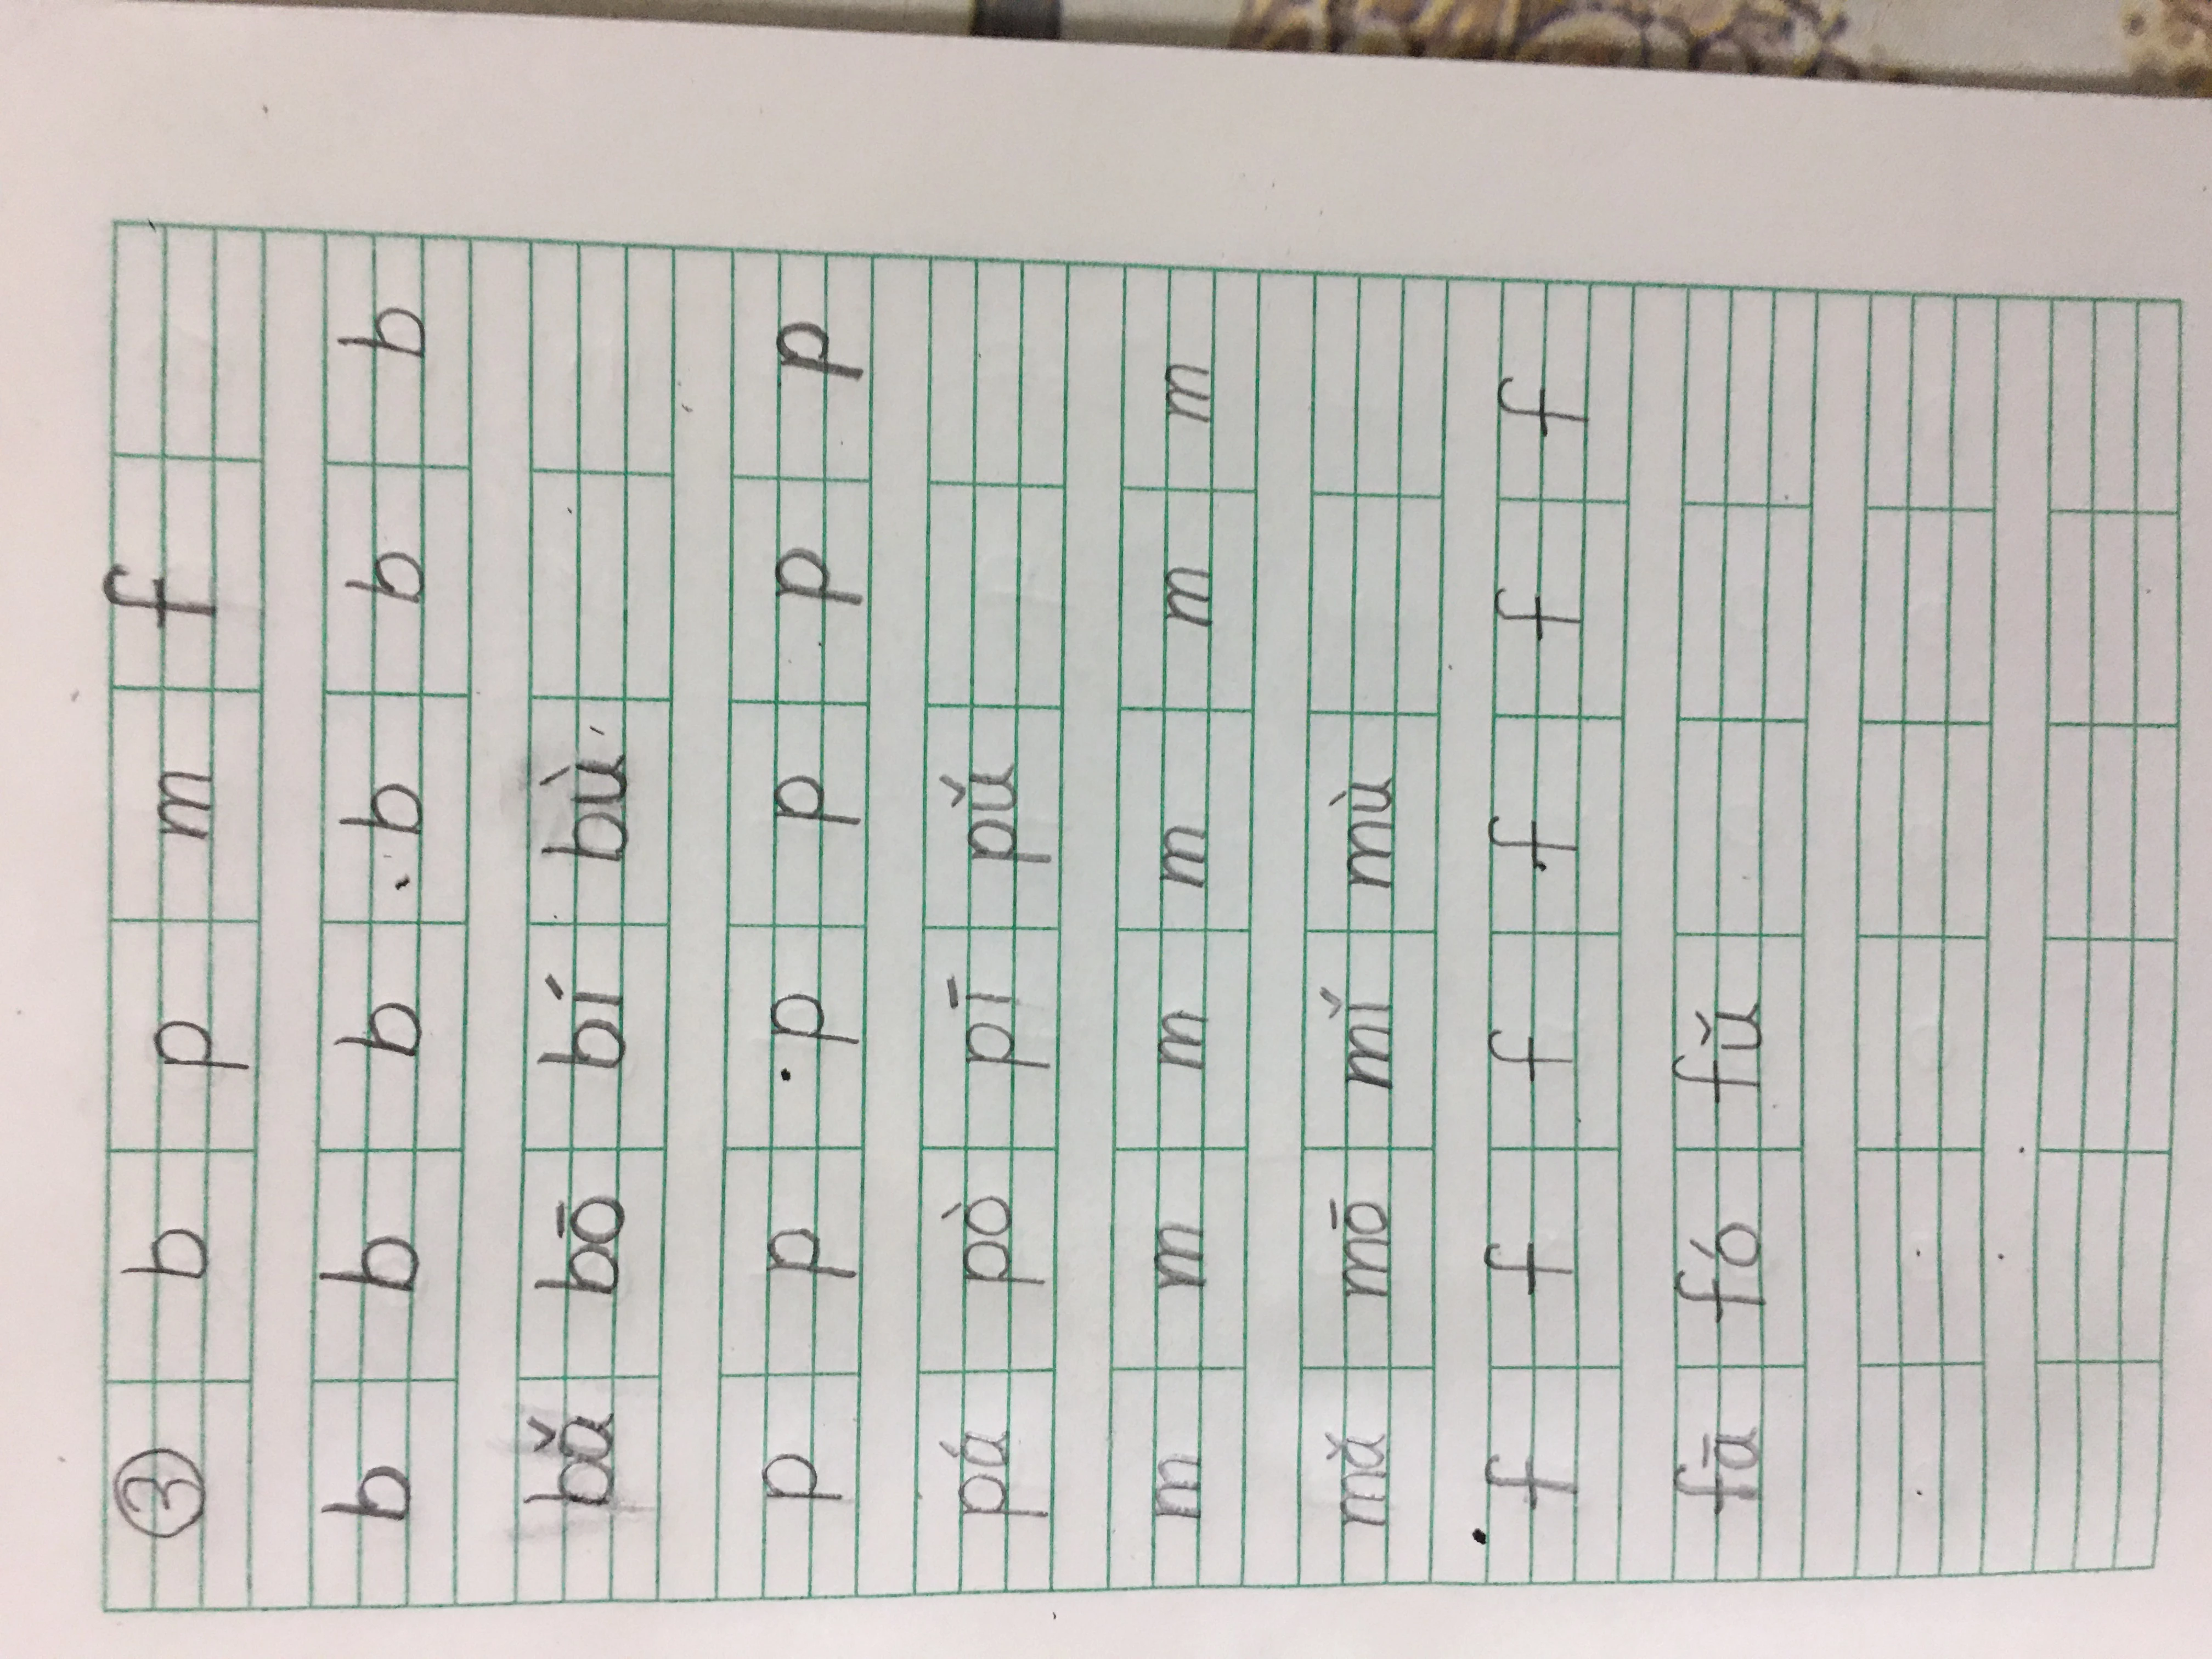 ③ b p m f
b b b b b b
bǎ bō bí bù
p p p p p p
pá pò pī pǔ
m m m m m m
mǎ mō mǐ mù
f f f f f f
fā fó fǔ